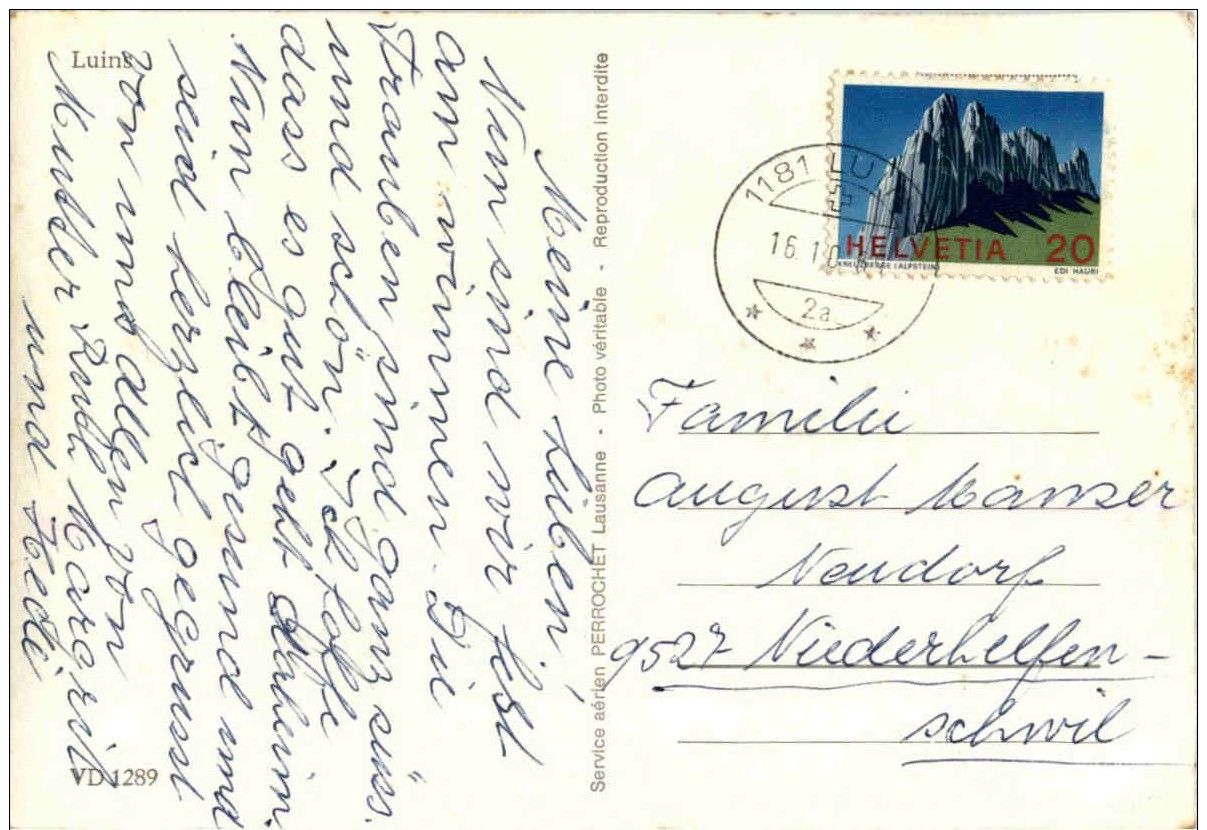 Luins
Meine Lieben!
Nun sind wir fest
am wimmen. Die
Trauben sind ganz süss
und schön. Ich hoffe
dass es gut geht daheim.
Nun bleibt gesund und
seid herzlich gegrüsst
von uns allen von
Mutter Ruedi Margrit
und Hedi
VD 1289
Service aérien PERROCHET Lausanne - Photo véritable - Reproduction interdite
1181 LU
16.10.
2a
HELVETIA 20
KREUZBERGE (ALPSTEIN) EDI HAURI
Familie
August Manser
Neudorf
9527 Niederhelfen-
schwil